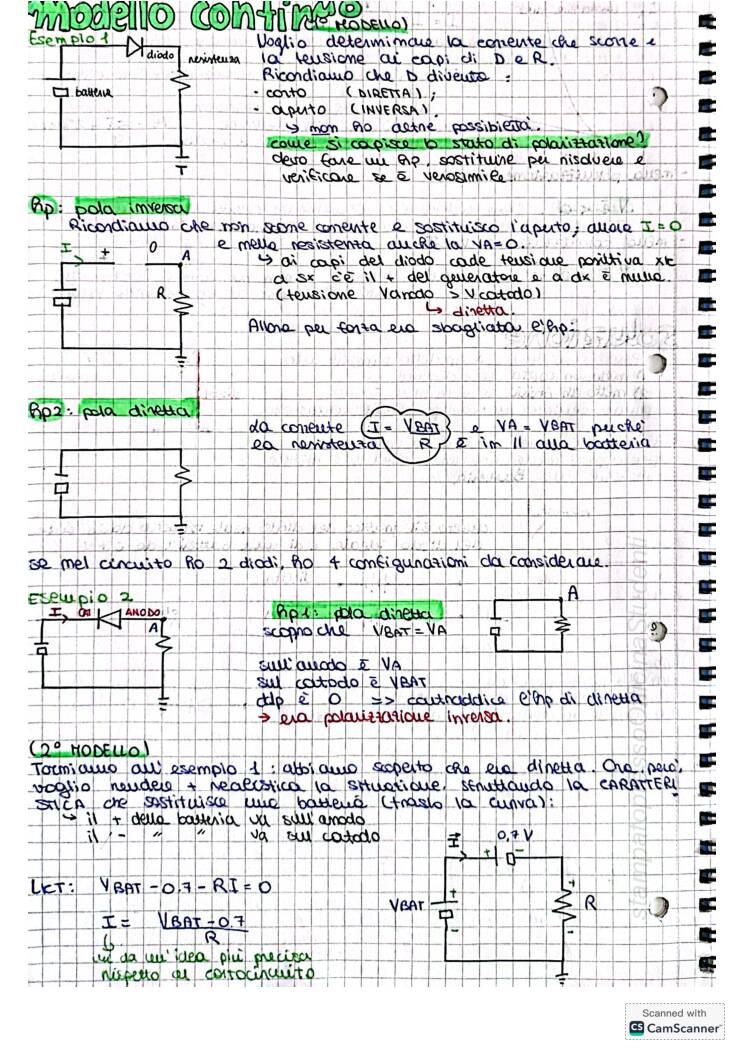 modello continuo
(1° MODELLO)
Esempio 1
diodo
resistenza
batteria
Voglio determinare la corrente che scorre e
la tensione ai capi di D e R.
Ricordiamo che D diventa :
- corto (DIRETTA) ;
- aperto (INVERSA).
↳ non ho altre possibilità.
come si capisce lo stato di polarizzazione?
devo fare un hp, sostituire per risolvere e
verificare se è verosimile.
hp: pola inversa
Ricordiamo che non scorre corrente e sostituisco l'aperto; allora I=0
e nella resistenza anche la VA=0.
↳ ai capi del diodo cade tensione positiva xk
a sx c'è il + del generatore e a dx è nulla.
(tensione Vanodo > Vcatodo)
↳ diretta.
Allora per forza era sbagliata l'hp.
I + 0 A
R
hp2: pola diretta
da corrente I = VBAT / R e VA = VBAT perché
la resistenza è in || alla batteria
se nel circuito ho 2 diodi, ho 4 configurazioni da considerare.
Esempio 2
I
ANODO
A
hp1: pola diretta
scopro che VBAT = VA
A
sull'anodo è VA
sul catodo è VBAT
ddp è 0 => contraddice l'hp di diretta
→ era polarizzazione inversa.
(2° MODELLO)
Torniamo all'esempio 1 : abbiamo scoperto che era diretta. Ora, però,
voglio rendere + realistica la situazione, sfruttando la CARATTERI
STICA che sostituisce una batteria (traslo la curva) :
↳ il + della batteria va sull'anodo
il - " " va sul catodo
LKT: VBAT - 0.7 - RI = 0
I = VBAT - 0.7
R
mi da un'idea più precisa
rispetto al cortocircuito
I 0,7 V
+ -
VBAT
+
-
R
+
-
stampatopressoOfficinaStudenti
Scanned with
CS CamScanner